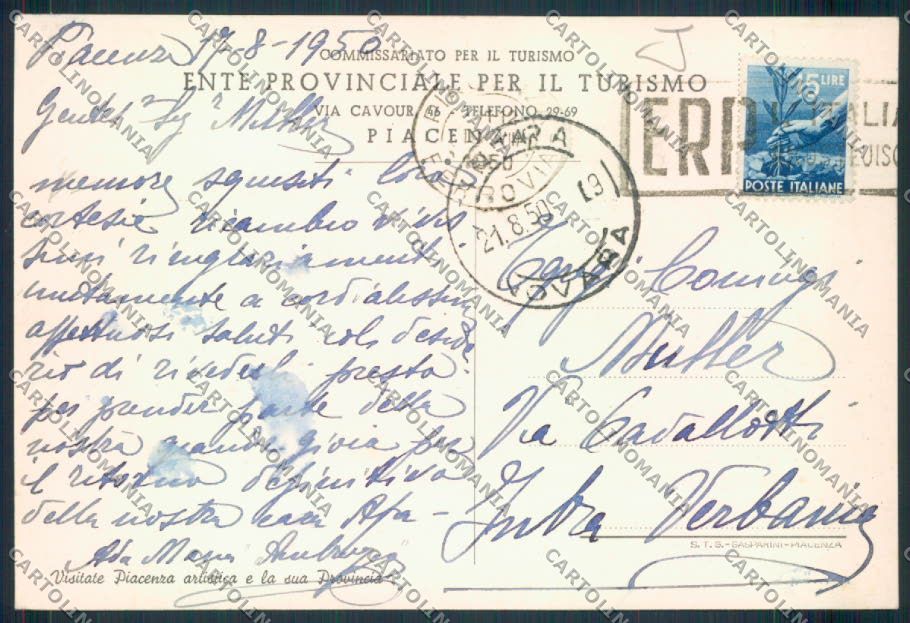 Piacenza 17-8-1950
COMMISSARIATO PER IL TURISMO
ENTE PROVINCIALE PER IL TURISMO
VIA CAVOUR 46 TELEFONO 29-69
PIACENZA
Gentil Sigg Muller
memore squisiti loro
cortesie ricambio vivis
simi ringraziamenti
unitamente a cordialissimi
affettuosi saluti col deside
rio di rivederli presto
per prender parte della
nostra grande gioia per
il ritorno definitivo
della nostra cara
Ada Maria
Visitate Piacenza artistica e la sua Provincia
15 LIRE
POSTE ITALIANE
ERP
21.8.50
Coniugi
Muller
Via Cavallotti
Intra Verbania
S.T.S.-GASPARINI-PIACENZA
CARTOLINOMANIA